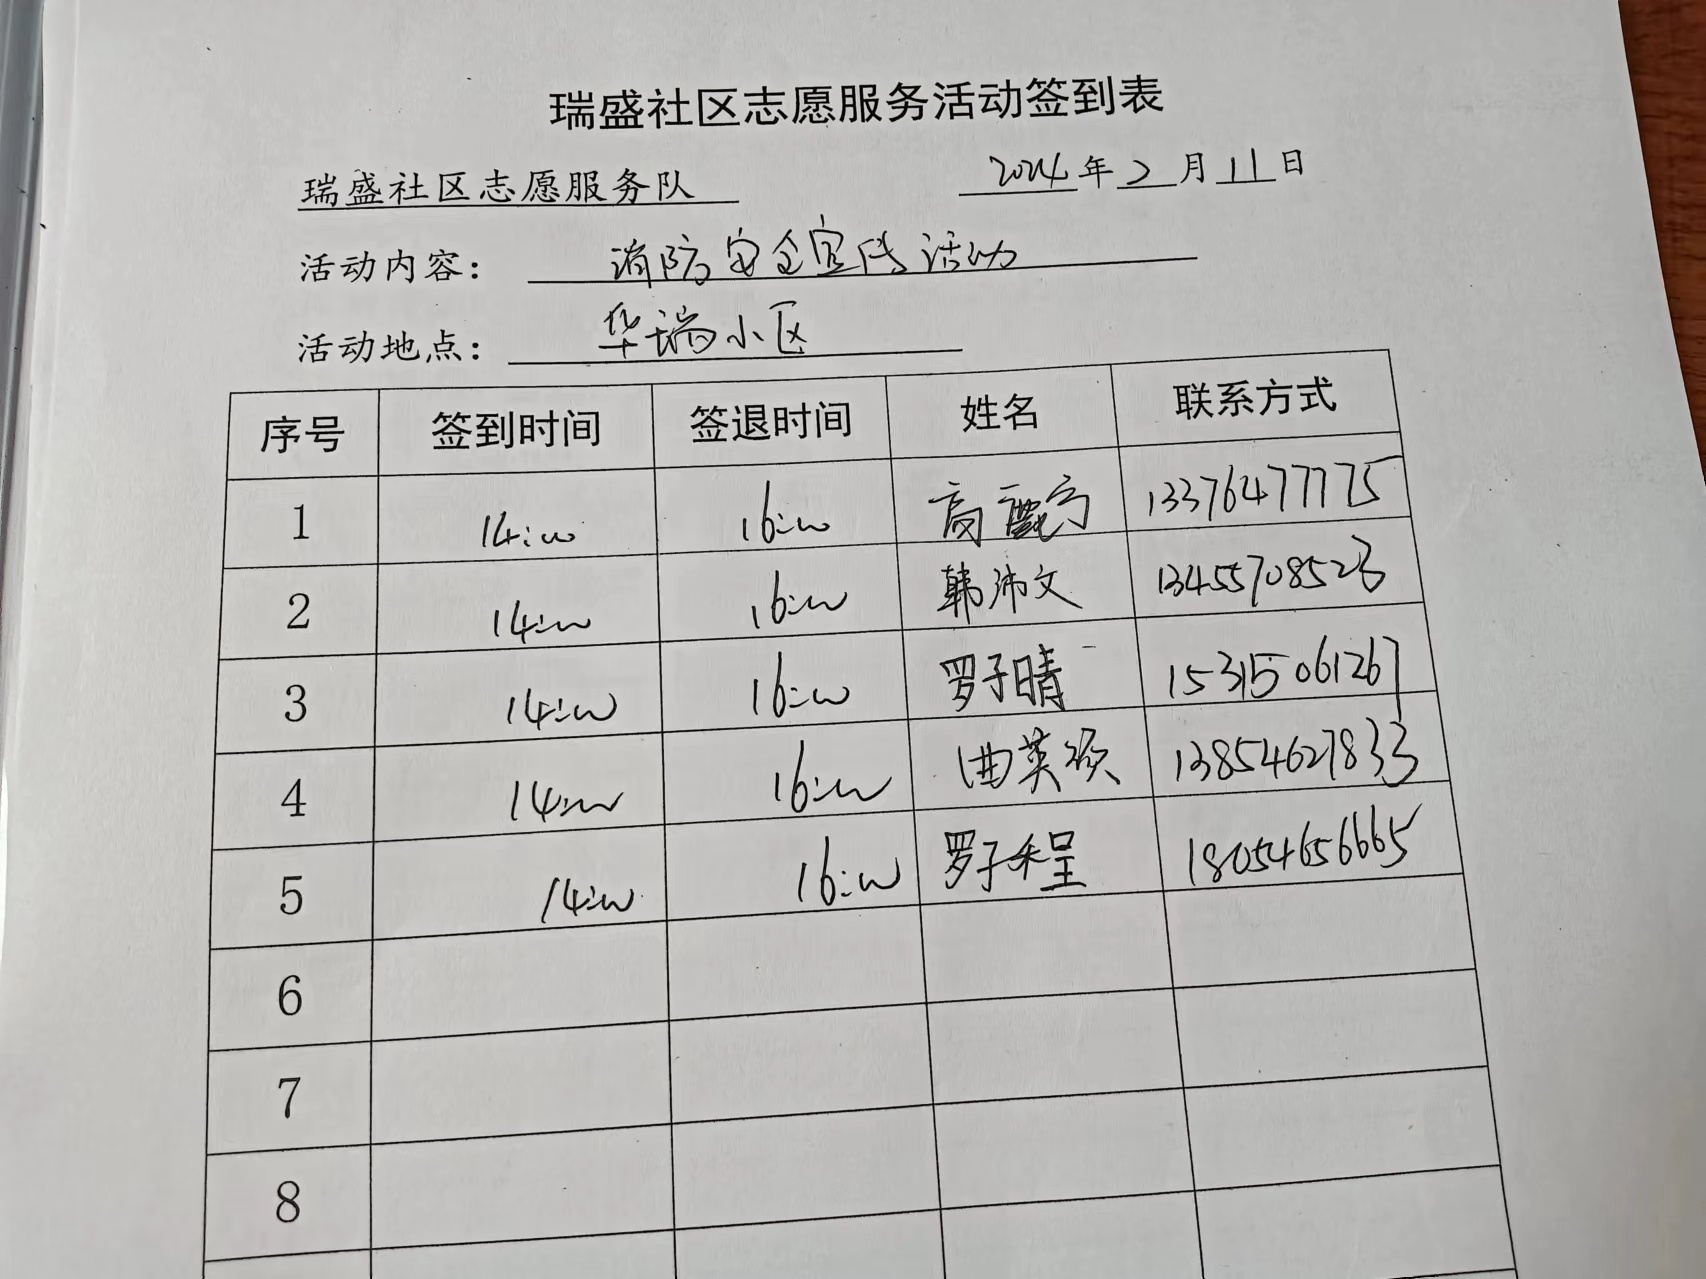 瑞盛社区志愿服务活动签到表
瑞盛社区志愿服务队 2024年2月11日
活动内容: 消防安全宣传活动
活动地点: 华瑞小区
序号 签到时间 签退时间 姓名 联系方式
1 14:00 16:00 高 13376477775
2 14:00 16:00 韩沛文 13455708523
3 14:00 16:00 罗子晴 15315061267
4 14:00 16:00 曲英 13854627833
5 14:00 16:00 罗子程 18054656665
6
7
8